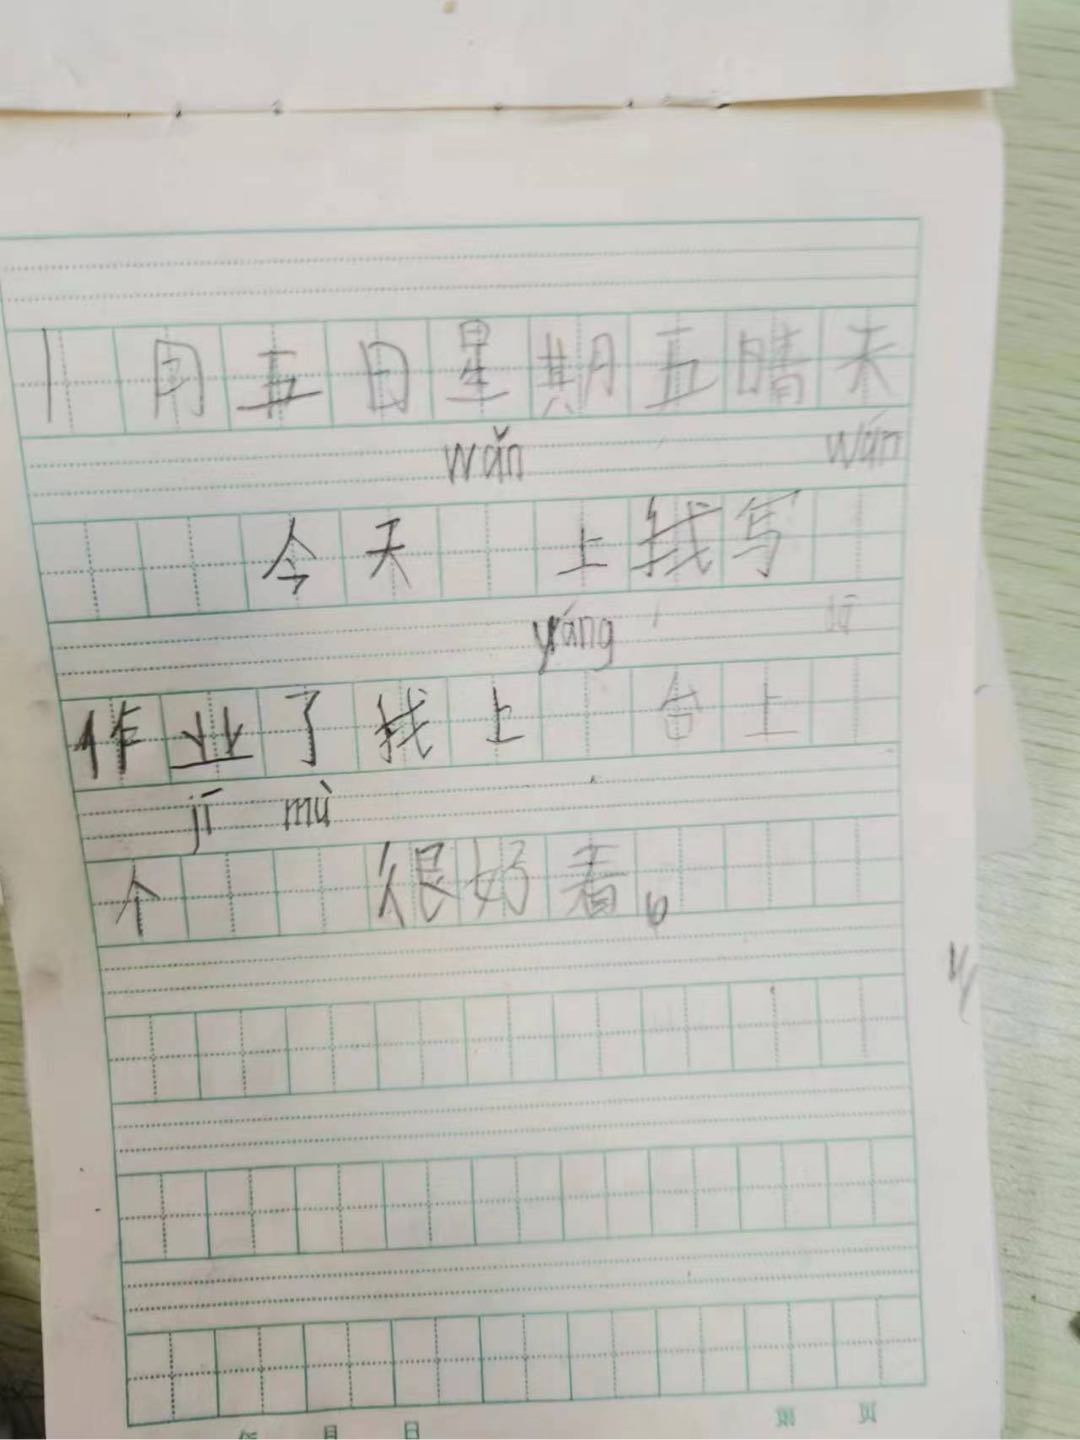 1月五日星期五晴天
wǎn wán
今天 上我写
yáng
作业了我上 台上
jī mù
个 很好看。
年 月 日 第 页